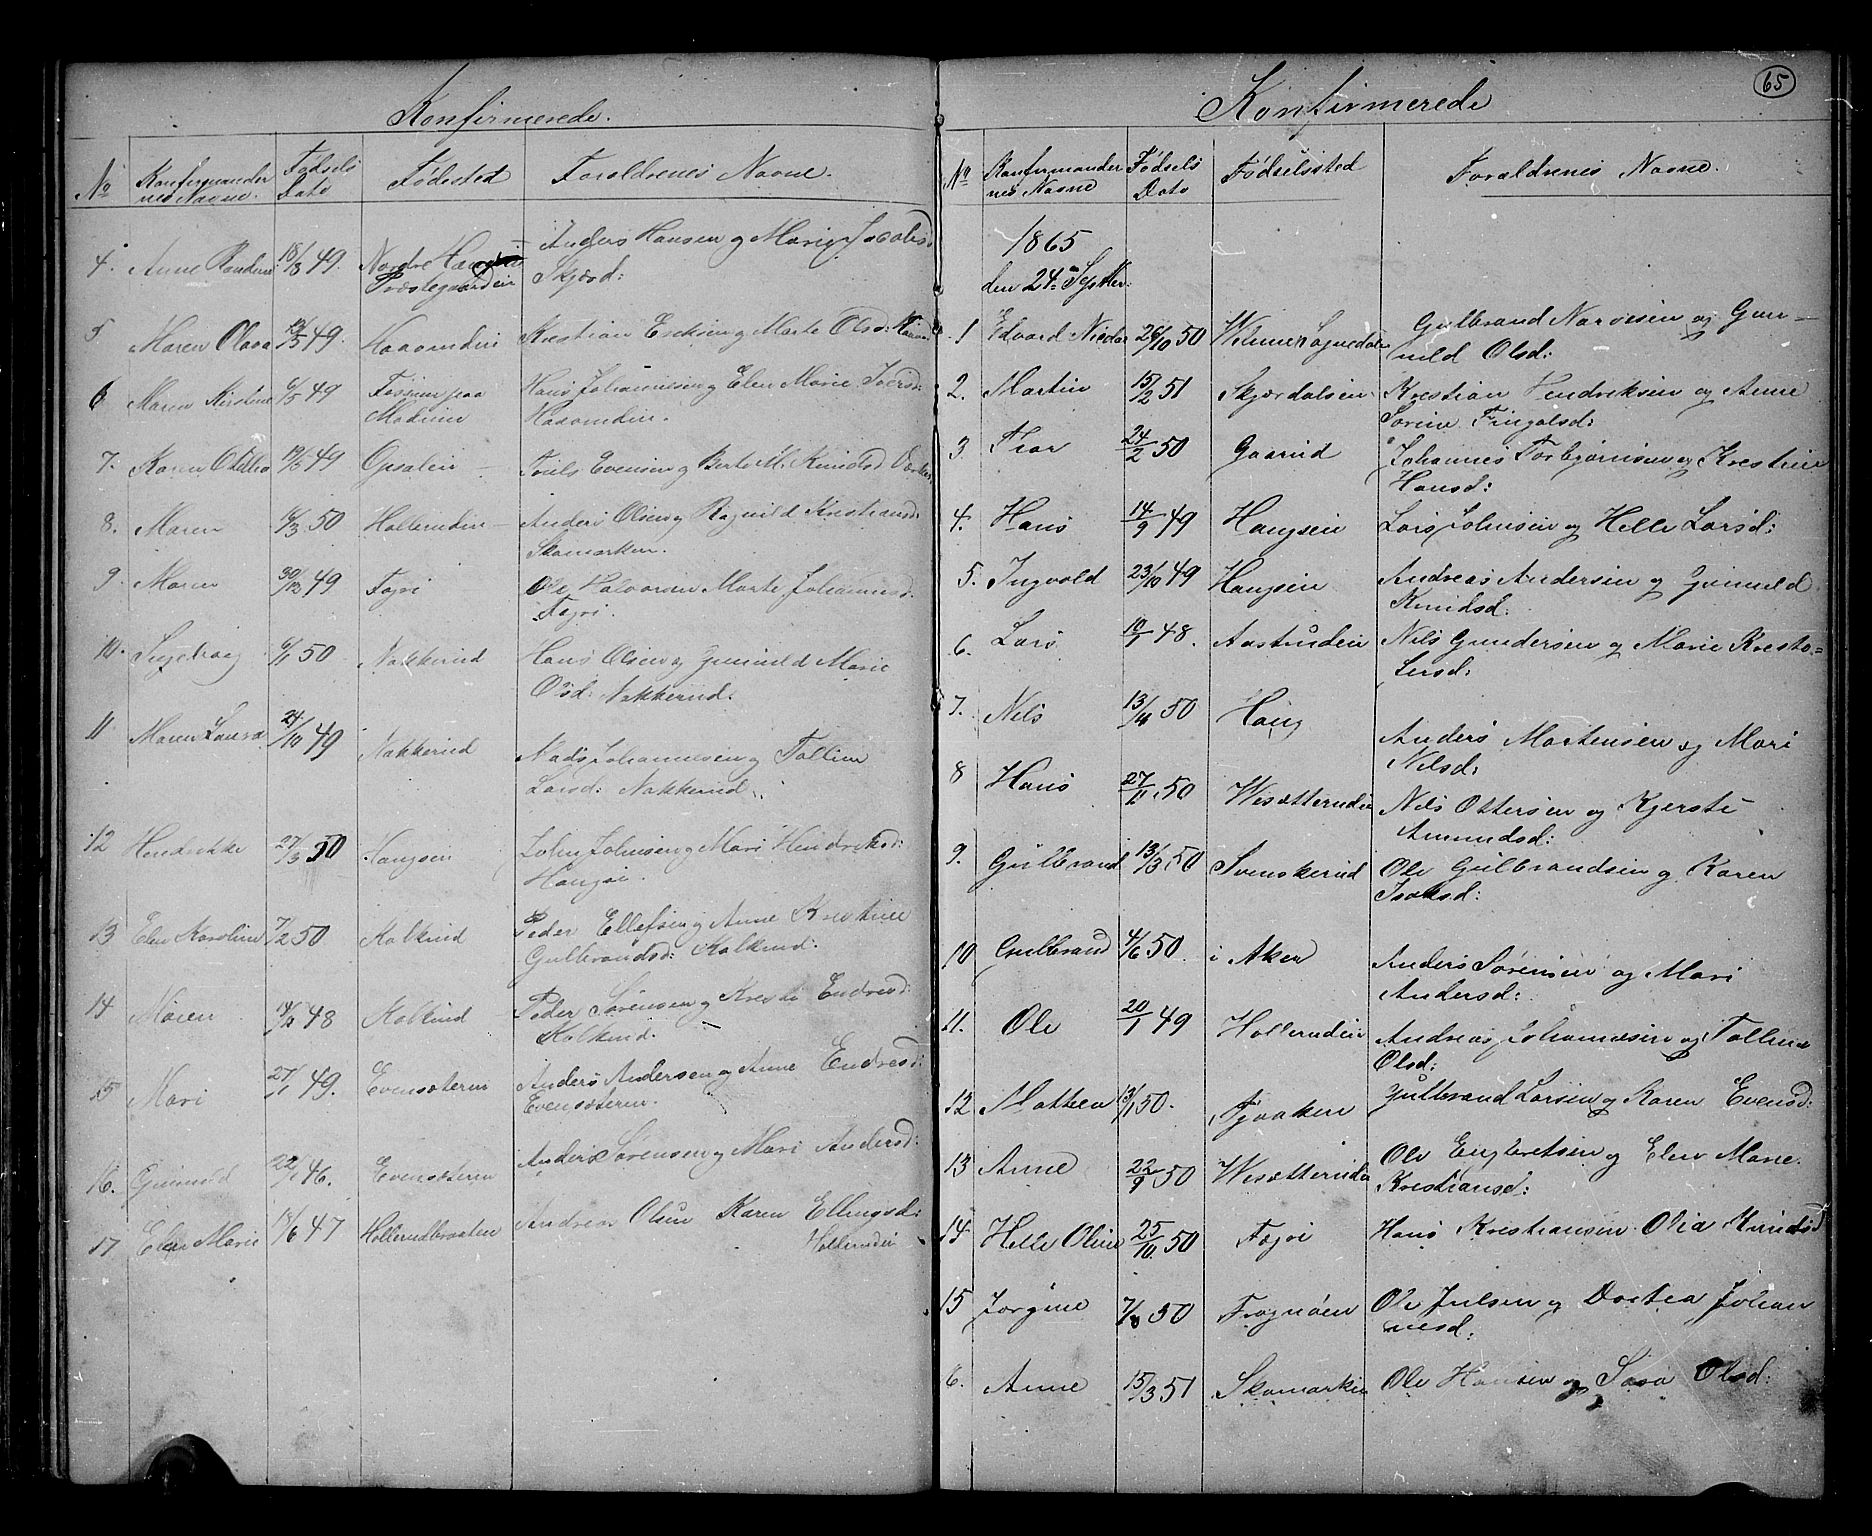 Konfirmerede.
No Konfirmander nes Navne. Fødsels Dato Fødested Forældrenes Navne.
4. Anne Randine 18/8 49. Nordre
Præstegaarden Anders Hansen og Marie Jacobsd:
Skjærd:
5 Maren Olava /5 49. Haavindin Krestian Ericksen og Marte Olsd:
6 Maren Kirstine 6/5 49 Fossum paa
Modum Hans Johannesen og Elen Marie Iversd:
7. Karen Othilia 49 Opsalen Truls Evensen og Berte M. Knudsd.
8. Maren /3 50 Hollerudin Anders Olsen og Ragnild Kristiansd:
Skamarken.
9. Maren 30/12 49 Fagri Ole Halvorsen Marte Johannesd.
Fagri.
10. Ingeborg 50 Nakkerud Hans Olsen og Gunnild Marie
Olsd: Nakkerud.
11 Maren Laura 24/10 49 Nakkerud Mads Johannesen og Tolline
Larsd: Nakkerud.
12 Hendrikke 27/3 50 Haugsen John Johnsen og Mari Hendriksd:
13 Elen Karoline 7/2 50 Kalkind Peder Ellefsen og Anne Krestine
Gulbrandsd: Kalkind:
14 Maren 48 Kalkind Peder Sørensen og Kresti Endresd:
Kalkind.
15 Mari 27/1 49. Evensæteren Anders Andersen og Anne Endresd:
Evensæteren.
16. Gunnild 22/1 46. Evensæteren Anders Sørensen og Mari Andersd:
17 Elen Marie 18/6 47 Hollerudbraaten Andreas Olsen Karen Ellingsd:
Hollerudei
65
Konfirmerede
No Konfirmander nes Navne Fødsels Dato Fødselssted Forældrenes Navne.
1865
den 24de Septber:
1 Edvard Nicolai 26/10 50 Gulbrand Narvesen og Gun-
nild Olsd:
2. Martin 15/2 51 Skjærdalsen Krestian Hendriksen og Anne
Sorine Fingalsd:
3. Thor 24/2 50 Gaarud Johannes Torbjørnsen og Krestine
Hansd:
4. Hans 14/9 49 Haugsen Lars Johnsen og Helle Larsd:
5. Ingvold 23/10 49 Haugsen Andreas Andersen og Gunnild
Knudsd:
6. Lars 10/1 48. Aastrudein Nils Gundersen og Marie Kresto=
fersd:
7. Nils 50 Haug Anders Mortensen og Mari
Nilsd:
8 Hans 27/11 50 Wesætteruden Nils Ottersen og Kjersti
Amundsd:
9. Gulbrand 13/3 50 Svenskerud Ole Gulbrandsen og Karen
Isaksd:
10 Gulbrand 4/6 50 i Aken Anders Sørensen og Mari
Andersd:
11. Ole 20/1 49 Hollerudein Andreas Johannesen og Tolline
Olsd:
12 Mathea 13/1 50. Gulbrand Larsen og Karen Evensd:
13 Anne 22/9 50 Wesætteruden Ole Engbretsen og Elen Marie
Krestiansd:
14 Helle Oline 25/10 50 Fagri Hans Krestiansen Olia Knudsd
15 Jørgine 50 Frognøen Ole Julsen og Dortea Johan
nesd:
6. Anne 15/3 51 Skamarken Ole Hansen og Sara Olsd: